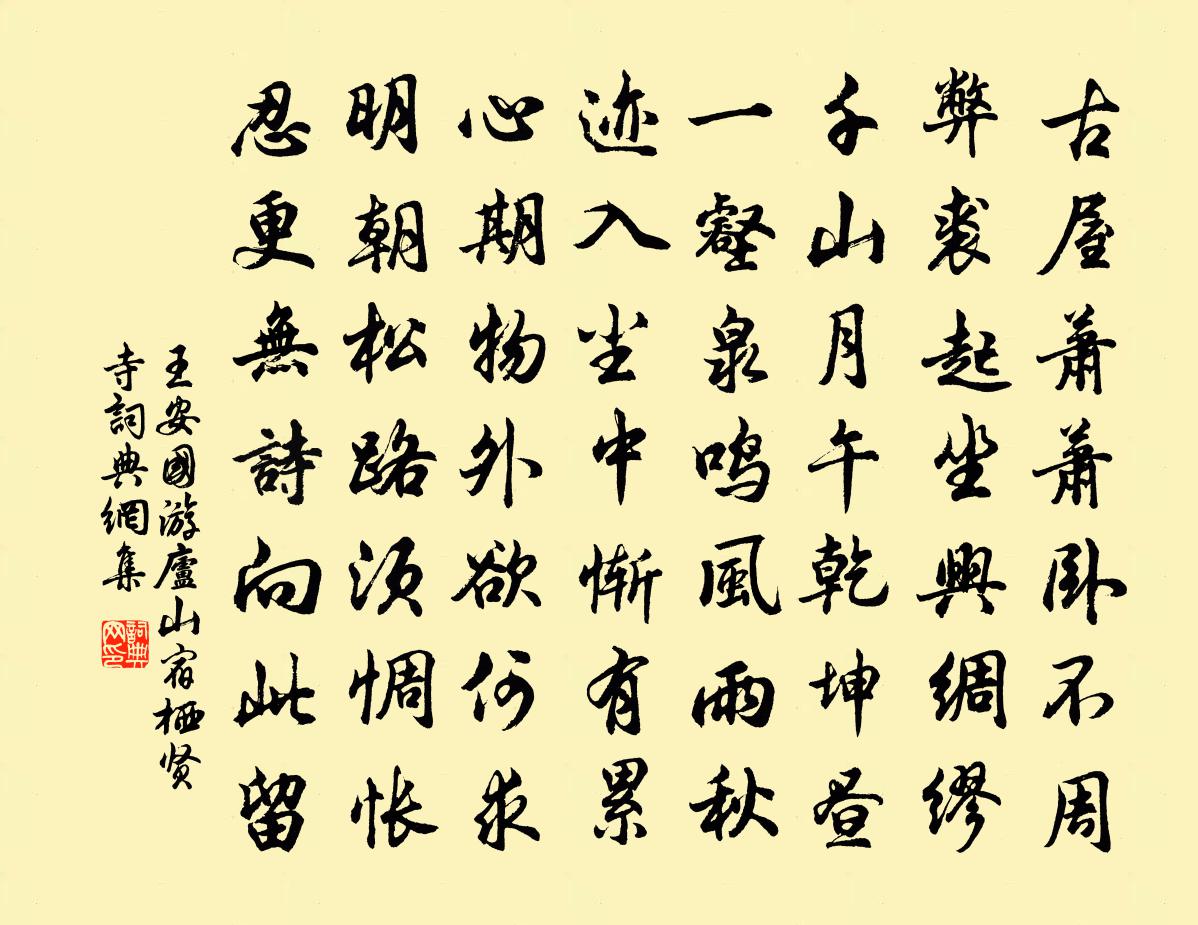 古屋萧萧卧不周
弊裘起坐興綢繆
千山月午乾坤昼
一壑泉鸣風雨秋
迹入尘中慚有累
心期物外欲何求
明朝松路须惆怅
忍更無詩向此留
王安國游廬山宿栖贤
寺詞典網集
詞典
网印